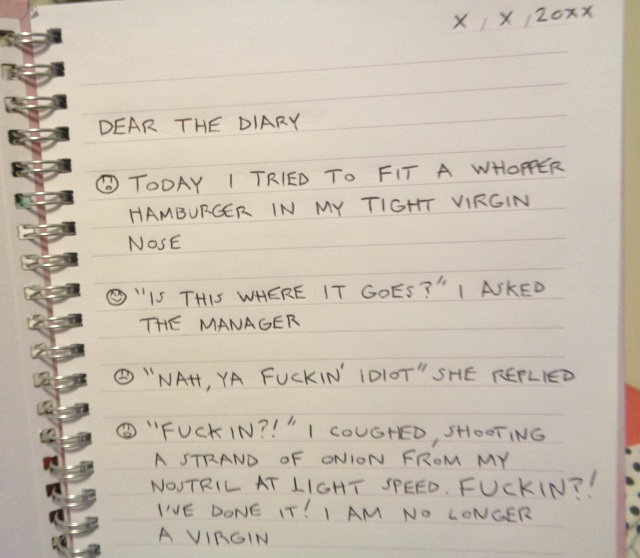 X / X / 20XX
DEAR THE DIARY
TODAY I TRIED TO FIT A WHOPPER
HAMBURGER IN MY TIGHT VIRGIN
NOSE
"IS THIS WHERE IT GOES?" I ASKED
THE MANAGER
"NAH, YA FUCKIN' IDIOT" SHE REPLIED
"FUCKIN?!" I COUGHED, SHOOTING
A STRAND OF ONION FROM MY
NOSTRIL AT LIGHT SPEED. FUCKIN?!
I'VE DONE IT! I AM NO LONGER
A VIRGIN